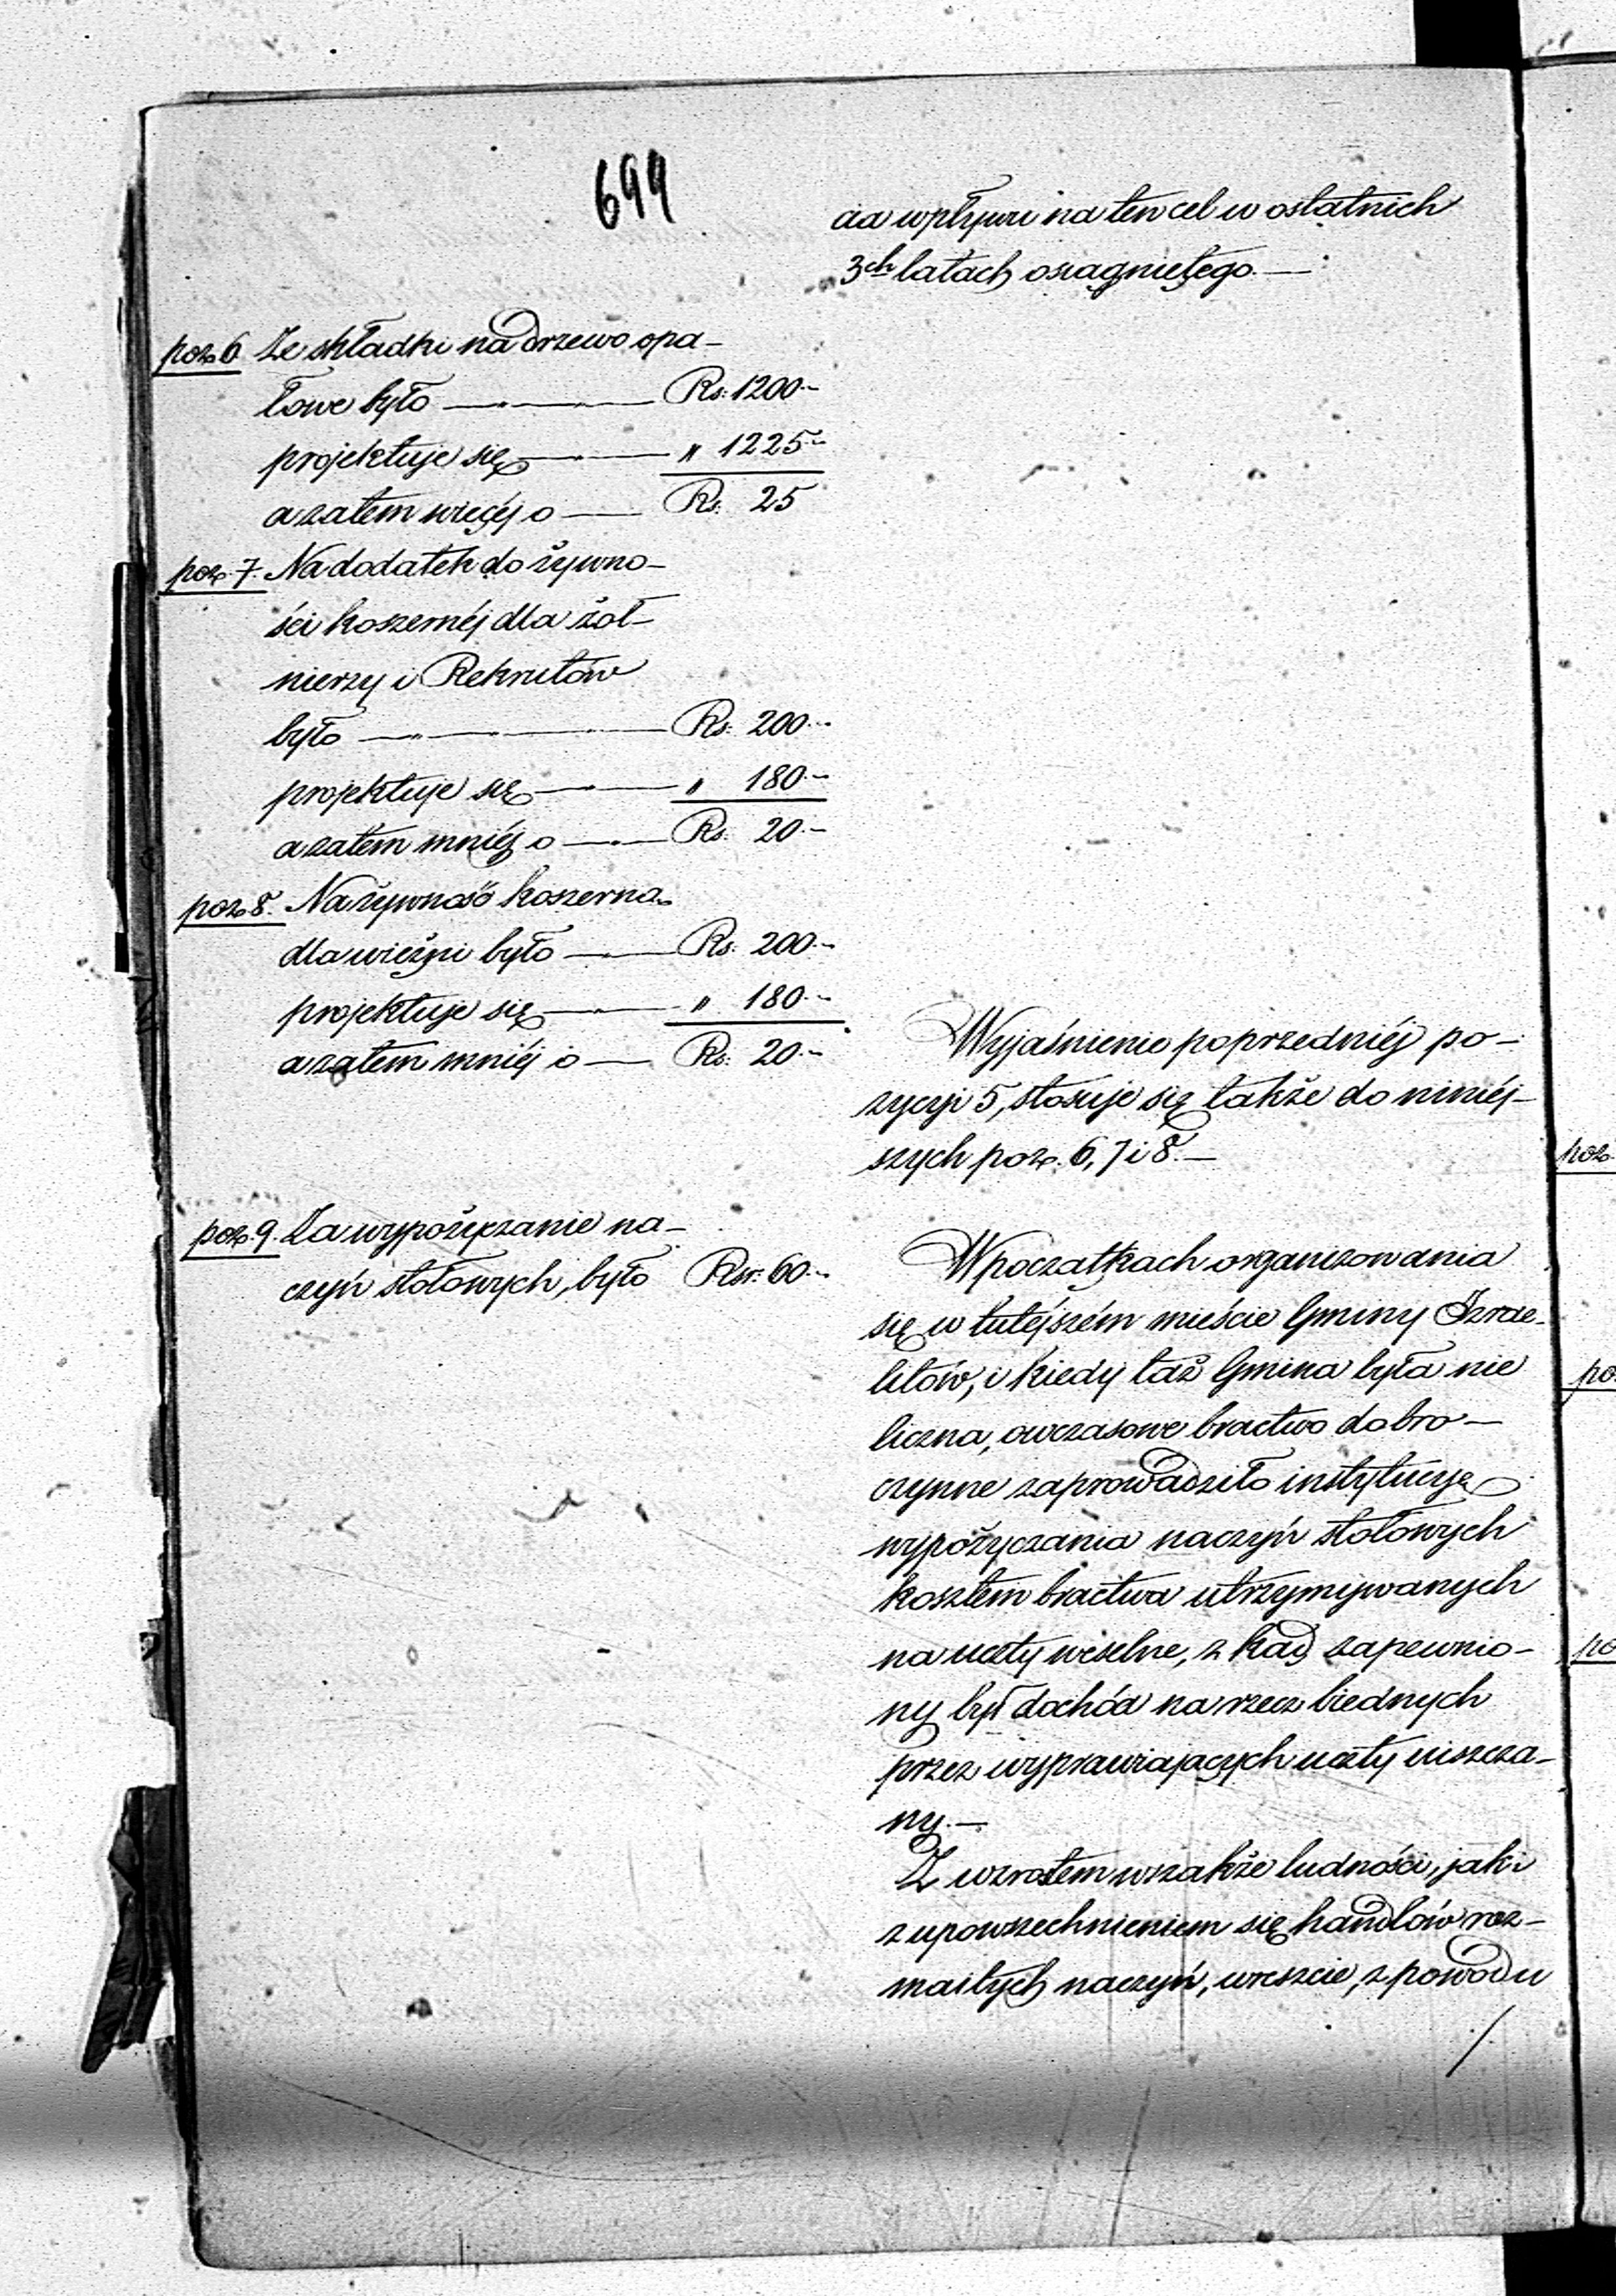 699
cia wpływu na ten cel w ostatnich
3ch latach osiągniętego.—
poz. 6. Ze składki na drzewo opa-
łowe było — " — Rs: 1200.-
projektuje się — " — " 1225.-
a zatem więcéj o — Rs: 25
poz. 7. Na dodatek do żywno-
ści koszernéj dla żoł-
nierzy i Rekrutów
było — " — " — Rs: 200.-
projektuje się — " — " 180.-
a zatem mniéj o — " — Rs: 20.-
poz. 8. Na żywność koszerną
dla więźni było — " — Rs: 200.-
projektuje się — " — " 180.-
a zatem mniéj o — Rs: 20.-
Wyjaśnienie poprzedniéj po-
zycyi 5, stosuje się także do niniéj-
szych poz. 6, 7 i 8.—
poz. 9. Za wypożyczanie na-
czyń stołowych, było Rsr: 60.-
W początkach organizowania
się w tutéjszém mieście Gminy Izrae-
litów, i kiedy taż Gmina była nie
liczna, owczasowe bractwo dobro-
czynne zaprowadziło instytucyę
wypożyczania naczyń stołowych
kosztem bractwa utrzymywanych
na uczty weselne, z kąd zapewnio-
ny był dochód na rzecz biednych
przez wyprawiających uczty uiszcza-
ny.—
Z wzrostem wszakże ludności, jak i
z upowszechnieniem się handlów roz-
maitych naczyń, wreszcie, z powodu
poz.
po
po